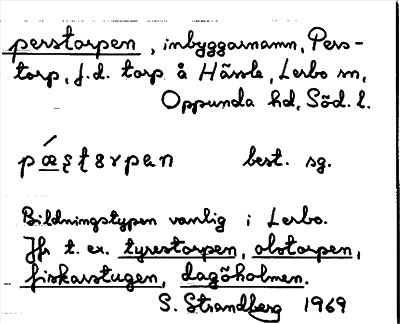 perstorpen, inbyggarnamn, Pers-
torp, f.d. torp å Hässle, Lerbo sn,
Oppunda hd, Söd. l.
best. sg.
Bildningstypen vanlig i Lerbo.
Jfr t. ex. tyrestorpen, olstorpen,
fiskarstugen, dagöholmen.
S. Strandberg 1969